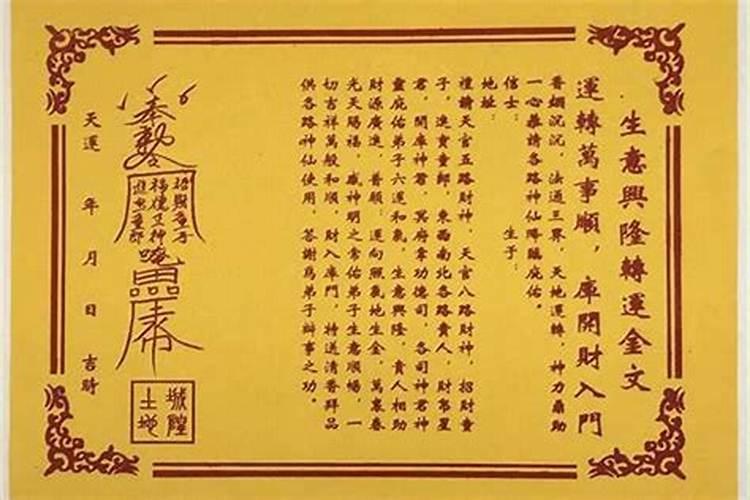 生意興隆轉運金文
運轉萬事順，庫開財入門
香烟沉沉，法通三界，天地運轉，神力鼎助
一心恭請各路神仙降臨庇佑。
信士：　生于：
地址：
禮請天官五路財神，天官八路財神，招財童
子，進寶童郎，東西南北各路貴人，財帛星
君，開庫神君，冥府掌功德司，各司神君神
靈庇佑弟子六運和氣，生意興隆，貴人相助
財源廣進，普願：運向照氣地生金，萬衆眷
光天賜福，感神明之常佑弟子生意順暢，一
切吉祥萬般和順，財入庫門，特送清香拜品
供各路神仙使用，答謝爲弟子辦事之功。
奉勅令
招財童子
福德正神
進寶童郎
城隍
土地
天運　年　月　日　吉時